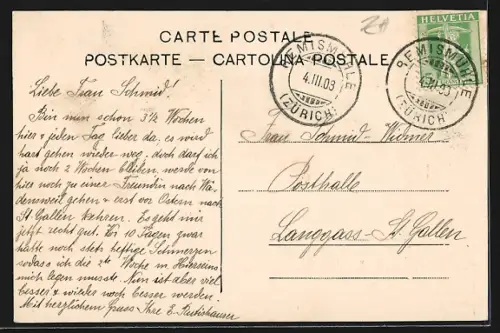 CARTE POSTALE
POSTKARTE — CARTOLINA POSTALE
HELVETIA
REMISMÜHLE
4.III.09
(ZÜRICH)
REMISMÜHLE
4.III.09
(ZÜRICH)
Liebe Frau Schmid!
Bin nun schon 3½ Wochen
hier & jeden Tag lieber da, es wird
hart gehen wieder weg. darf ich
ja noch 2 Wochen bleiben werde von
hier noch zu einer Freundin nach Wä-
densweil gehen & erst vor Ostern nach
St Gallen kehren. Es geht mir
jetzt recht gut. Vor 10 Tagen zwar
hatte noch stets heftige Schmerzen
sodass ich die 2te Woche m. Hierseins
mich legen musste. Nun ist aber viel
besser & wird noch besser werden.
Mit herzlichem Gruss Ihre E. Rutishauser
Frau Schmid-Widmer
Posthalle
Langgass-St. Gallen